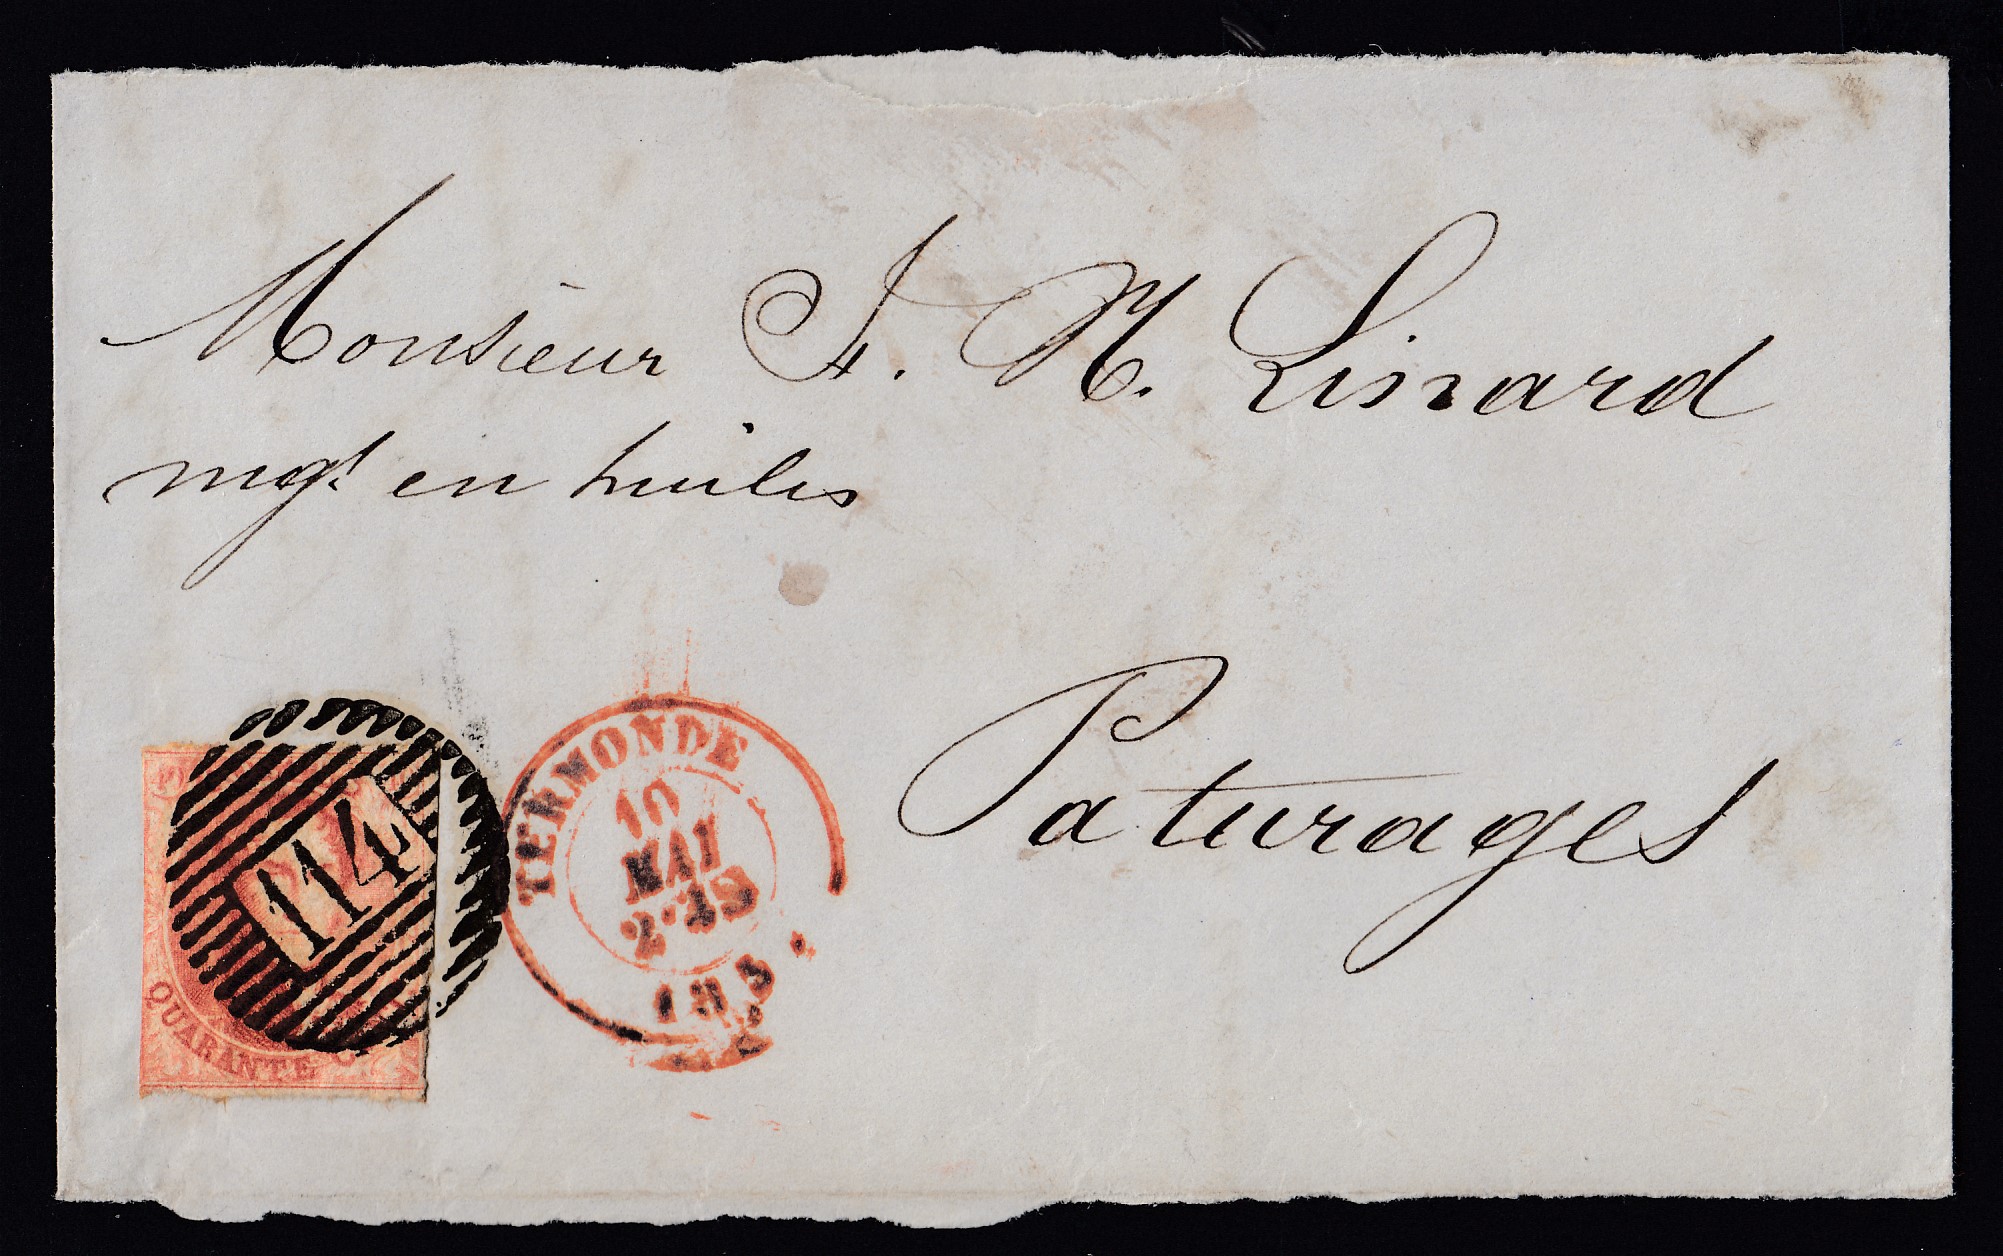 Monsieur A. N. Lisrard
mgt en huiles
Paturages
114
QUARANTE
TERMONDE
10
MAI
2-3S
185